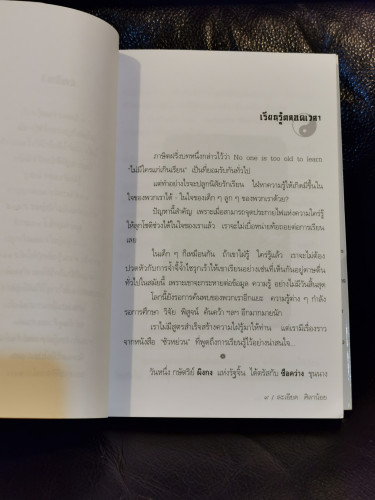 เรียนรู้ตลอดเวลา
ภาษิตฝรั่งบทหนึ่งกล่าวไว้ว่า No one is too old to learn
"ไม่มีใครแก่เกินเรียน" เป็นที่ยอมรับกันทั่วไป
แต่ทำอย่างไรจะปลูกนิสัยรักเรียน ใฝ่หาความรู้ให้เกิดมีขึ้นใน
ใจของพวกเราได้ - ในใจเด็ก ๆ ลูก ๆ ของพวกเราด้วย?
ปัญหานี้สำคัญ เพราะเมื่อสามารถจุดประกายไฟแห่งความใคร่รู้
ให้ลุกโชติช่วงได้ในใจของเราแล้ว เราจะไม่เบื่อหน่ายท้อถอยต่อการเรียน
เลย
ในเด็ก ๆ ก็เหมือนกัน ถ้าเขาใฝ่รู้ ใคร่รู้แล้ว เราจะไม่ต้อง
ปวดหัวกับการจ้ำจี้จ้ำไชรุกเร้าให้เขาเรียนอย่างเช่นที่เห็นกันอยู่ดาษดื่น
ทั่วไปในสมัยนี้ เพราะเขาจะกระหายต่อข้อมูล ความรู้ อย่างไม่มีวันสิ้นสุด
โลกนี้ยังรอการค้นพบของพวกเราอีกเยอะ ความรู้ต่าง ๆ กำลัง
รอการศึกษา วิจัย พิสูจน์ ค้นคว้า ฯลฯ อีกมากมายนัก
เราไม่มีสูตรสำเร็จสร้างความใฝ่รู้มาให้ท่าน แต่เรามีเรื่องราว
จากหนังสือ "ซัวหย่วน" ที่พูดถึงการเรียนรู้ไว้อย่างน่าสนใจ...
วันหนึ่ง กษัตริย์ ผิงกง แห่งรัฐจิ้น ได้ตรัสกับ ซือควง ขุนนาง
๙ | ละเอียด ศิลาน้อย